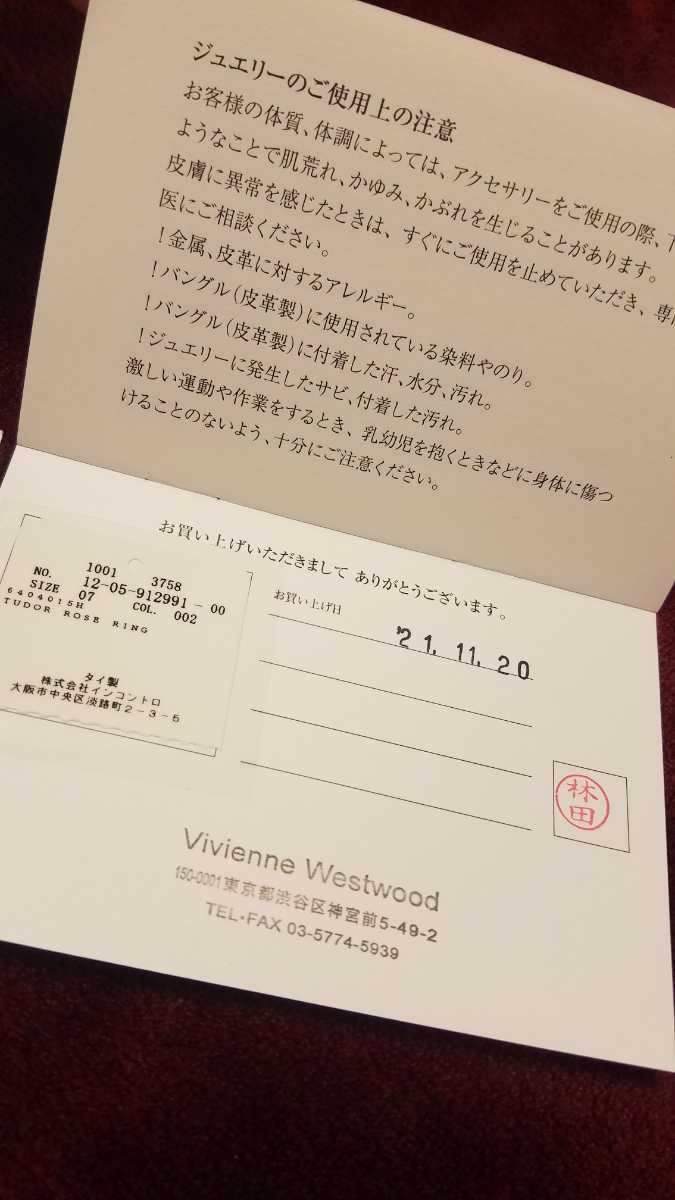 ジュエリーのご使用上の注意
お客様の体質、体調によっては、アクセサリーをご使用の際、下
ようなことで肌荒れ、かゆみ、かぶれを生じることがあります。
皮膚に異常を感じたときは、すぐにご使用を止めていただき、専
医にご相談ください。
!金属、皮革に対するアレルギー。
!バングル(皮革製)に使用されている染料やのり。
!バングル(皮革製)に付着した汗、水分、汚れ。
!ジュエリーに発生したサビ、付着した汚れ。
激しい運動や作業をするとき、乳幼児を抱くときなどに身体に傷つ
けることのないよう、十分にご注意ください。
お買い上げいただきまして ありがとうございます。
NO. 1001 3758
12-05-912991-00
SIZE 07 COL. 002
6404015H
TUDOR ROSE RING
タイ製
株式会社インコントロ
大阪市中央区淡路町2-3-5
お買い上げ日
'21.11.20
林田
Vivienne Westwood
150-0001東京都渋谷区神宮前5-49-2
TEL・FAX 03-5774-5939